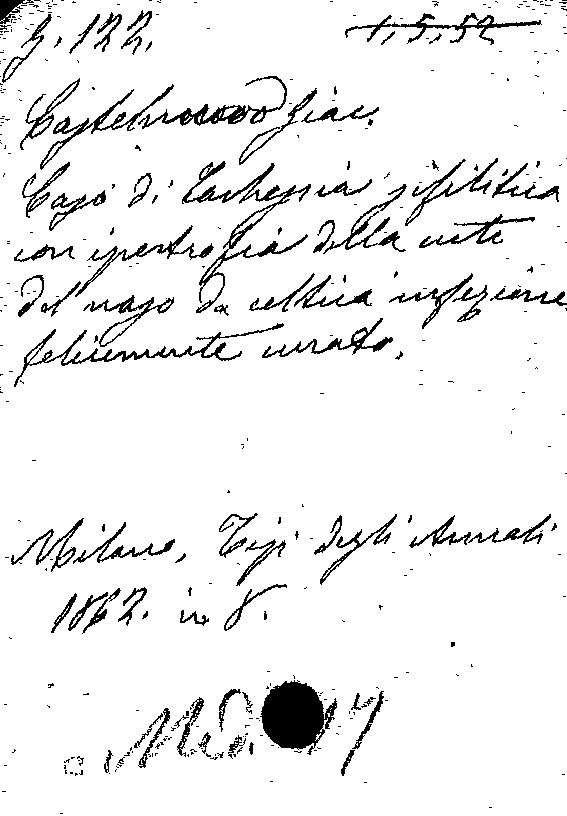 G. 122. 1, 5, 52
Castelnuovo Giac.
Caso di Cachessia sifilitica
con ipertrofia della cute
del naso da celtica infezione
felicemente curato.
Milano, Tipi degli Annali
1862. in 8.
Med. 17